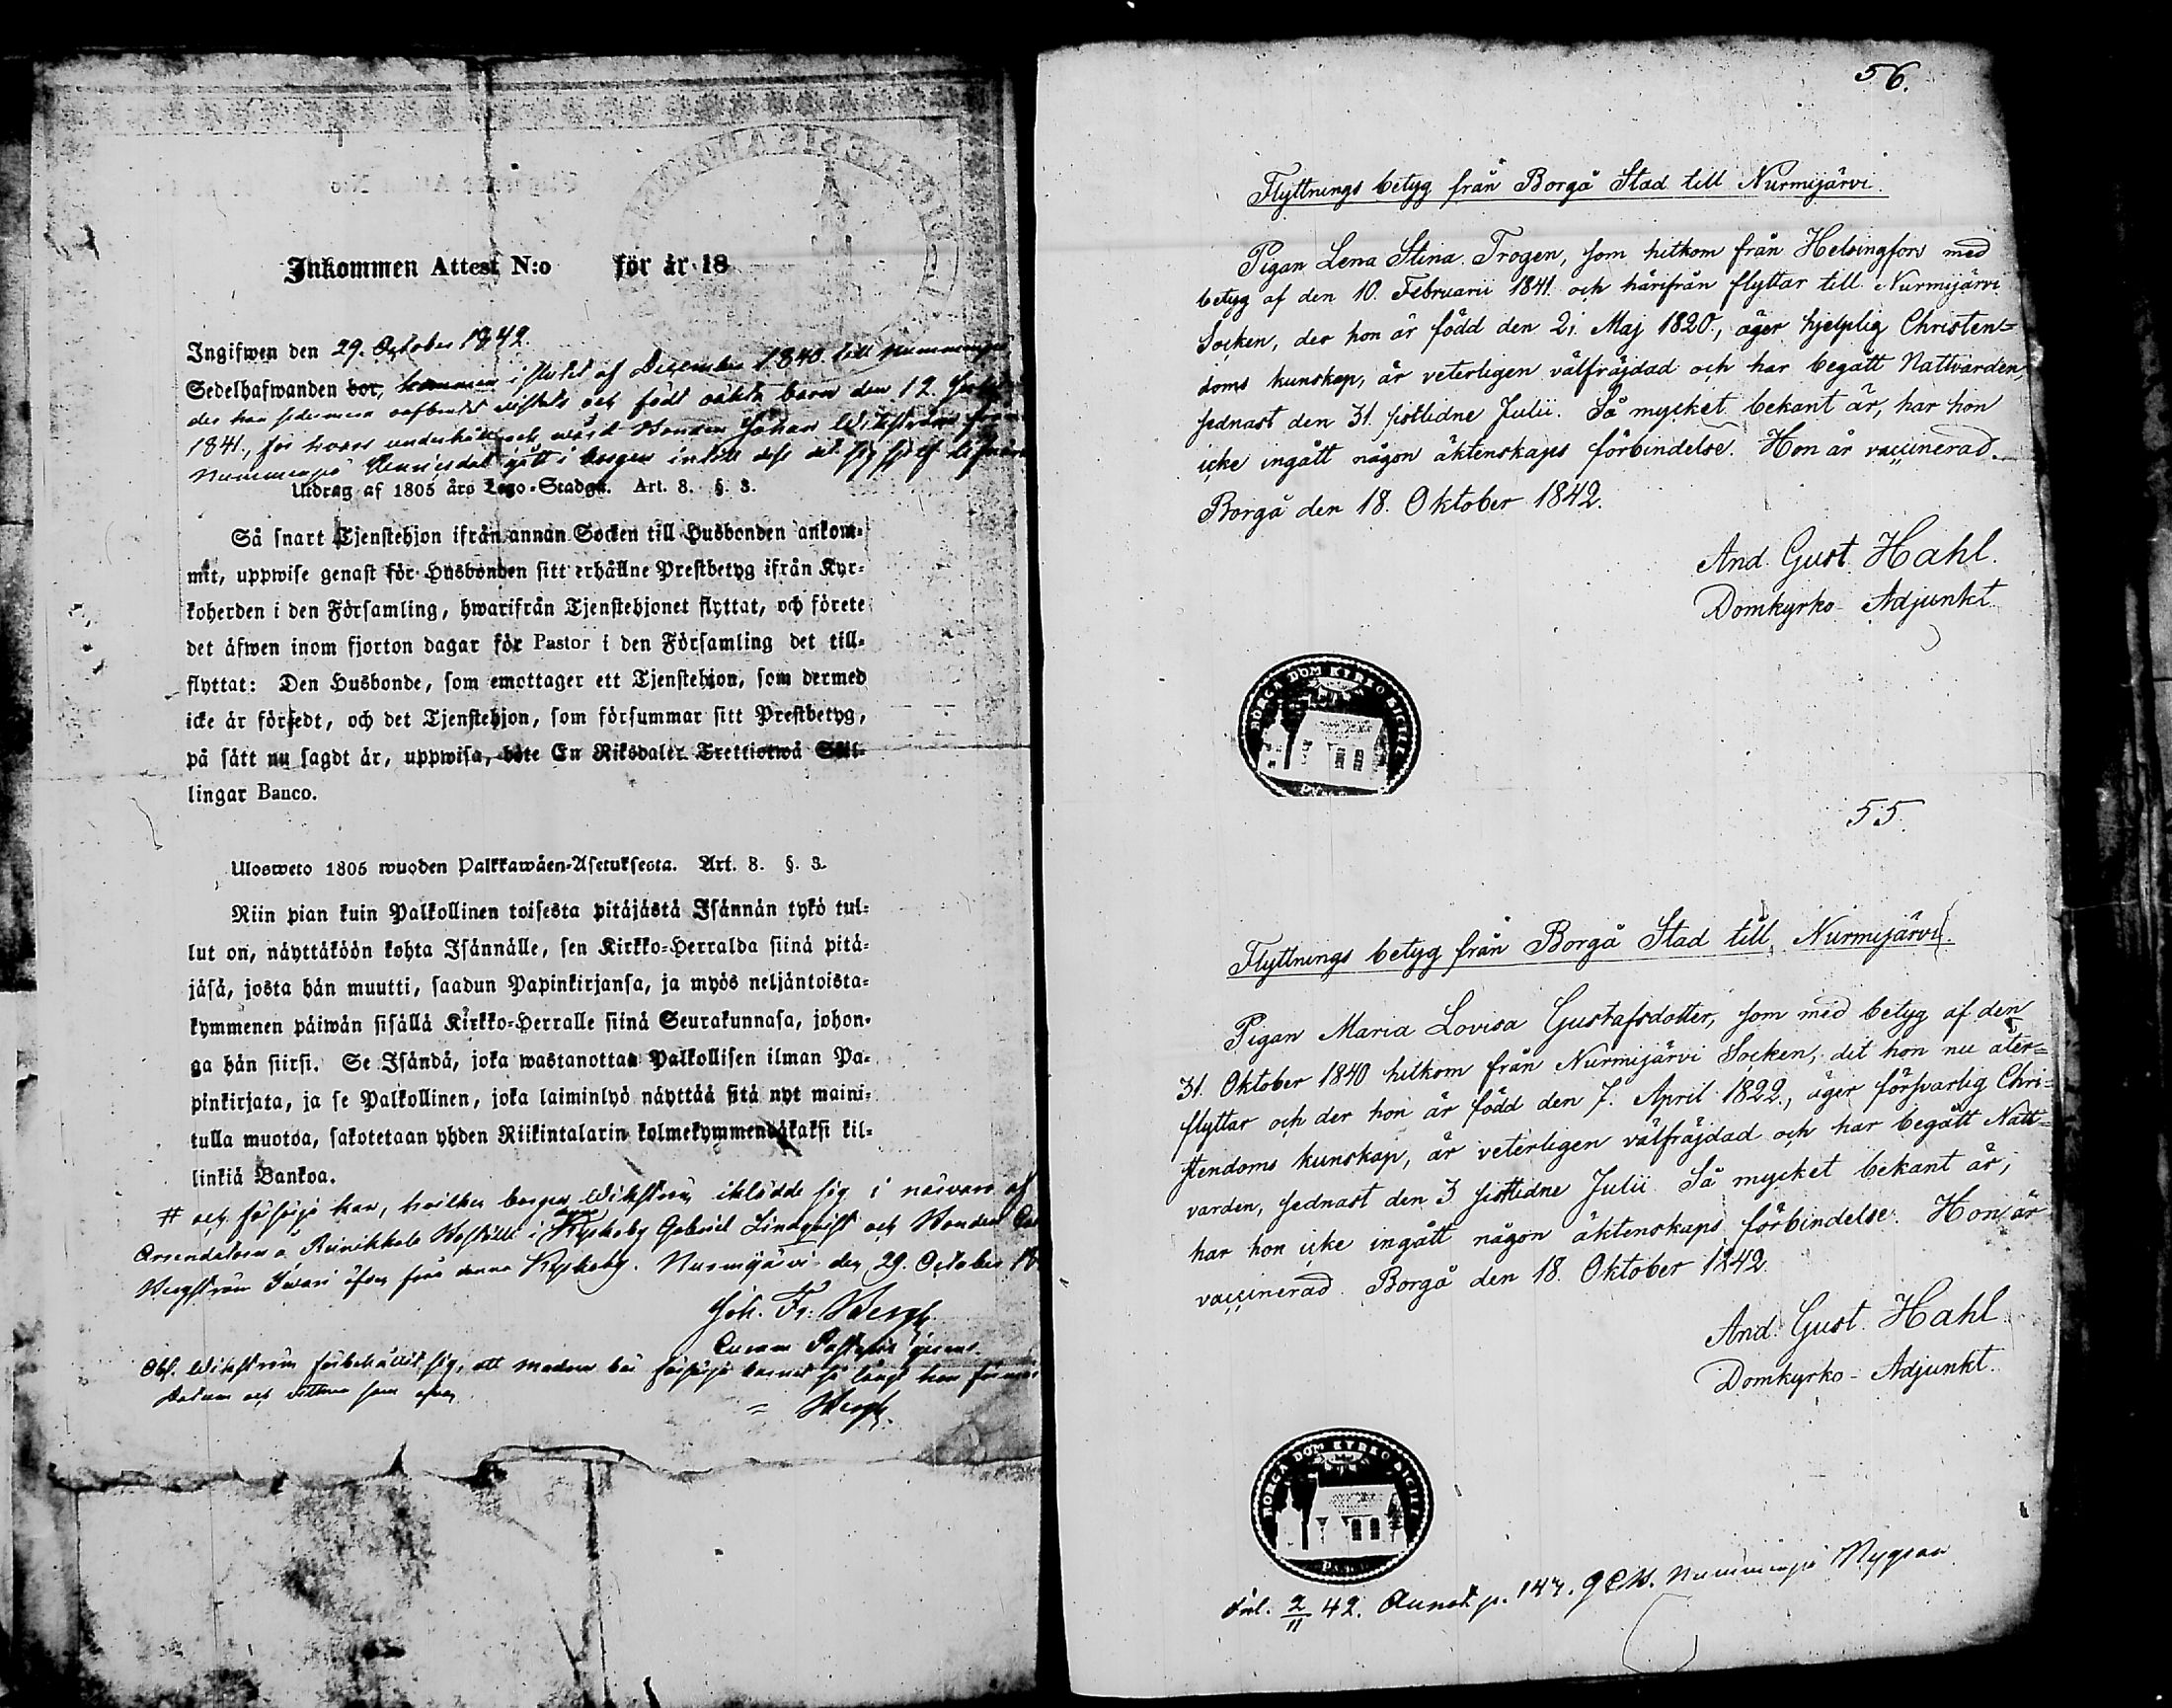 Inkommen Attest N:o för år 18
Ingifwen den 29. October 1842.
Sedelhafwanden bor, kommen i slutet af December 1840 till Nummenpää
der hon sedermera oafbrutet vistats och födt oäkta barn den 12.
1841, för hvars underhåll och vård Bonden Johan Wikström från
Nummenpää gått i borgen intill dess det sig sjelf
Utdrag af 1805 års Lego-Stadga. Art. 8. §. 3.
Så snart Tjenstehjon ifrån annan Socken till Husbonden ankom-
mit, uppwise genast för Husbonden sitt erhållne Prestbetyg ifrån Kyr-
koherden i den Församling, hwarifrån Tjenstehjonet flyttat, och förete
det äfwen inom fjorton dagar för Pastor i den Församling det till-
flyttat: Den Husbonde, som emottager ett Tjenstehjon, som dermed
icke är försedt, och det Tjenstehjon, som försummar sitt Prestbetyg,
på sätt nu sagdt är, uppwisa, böte En Riksdaler Trettiotwå Skil-
lingar Banco.
Ulosweto 1805 wuoden Palkkawäen-Asetuksesta. Art. 8. §. 3.
Niin pian kuin Palkollinen toisesta pitäjästä Isännän tykö tul-
lut on, näyttäköön kohta Isännälle, sen Kirkko-Herralda siinä pitä-
jäsä, josta hän muutti, saadun Papinkirjansa, ja myös neljäntoista-
kymmenen päiwän sisällä Kirkko-Herralle siinä Seurakunnasa, johon-
ga hän siirsi. Se Isändä, joka wastanottaa Palkollisen ilman Pa-
pinkirjata, ja se Palkollinen, joka laiminlyö näyttää sitä nyt maini-
tulla muotoa, sakotetaan yhden Riikintalarin kolmekymmendäkaksi kil-
linkiä Bankoa.
# och försörja kan, hvilken borgen Wikström iklädde sig i närvaro af
Arrendatorn å Reinikkala Boställe i Kyrkoby Gabriel Lindqvist och Bonden
Bergström Iwari äfven från denna Kyrkoby. Nurmijärvi den 29. October
Joh. Fr. Bergh
Curam Pastoris gerens.
Obs. Wikström förbehållit sig, att modren bör försörja barnet så långt hon förmår
Datum och vittnen som ofvan
= Bergh.
56.
Flyttnings betyg från Borgå Stad till Nurmijärvi.
Pigan Lena Stina Trogen, som hitkom från Helsingfors med
betyg af den 10. Februarii 1841 och härifrån flyttar till Nurmijärvi
Socken, der hon är född den 21. Maj 1820., äger hjelplig Christen=
doms kunskap, är veterligen välfräjdad och har begått Nattvarden,
sednast den 31. sistlidne Julii. Så mycket bekant är, har hon
icke ingått någon äktenskaps förbindelse. Hon är vaccinerad.
Borgå den 18. Oktober 1842.
And. Gust. Hahl.
Domkyrko-Adjunkt.
BORGÅ DOM KYRKO SIGILL
55.
Flyttnings betyg från Borgå Stad till Nurmijärvi.
Pigan Maria Lovisa Gustafsdotter, som med betyg af den
31. Oktober 1840 hitkom från Nurmijärvi Socken, dit hon nu åter=
flyttar och der hon är född den 7. April 1822., äger försvarlig Chri=
stendoms kunskap, är veterligen välfräjdad och har begått Natt=
varden, sednast den 3 sistlidne Julii. Så mycket bekant är,
har hon icke ingått någon äktenskaps förbindelse. Hon är
vaccinerad. Borgå den 18. Oktober 1842.
And. Gust. Hahl.
Domkyrko-Adjunkt.
BORGÅ DOM KYRKO SIGILL
2/11 42. p. 147. Nummenpää Nygran